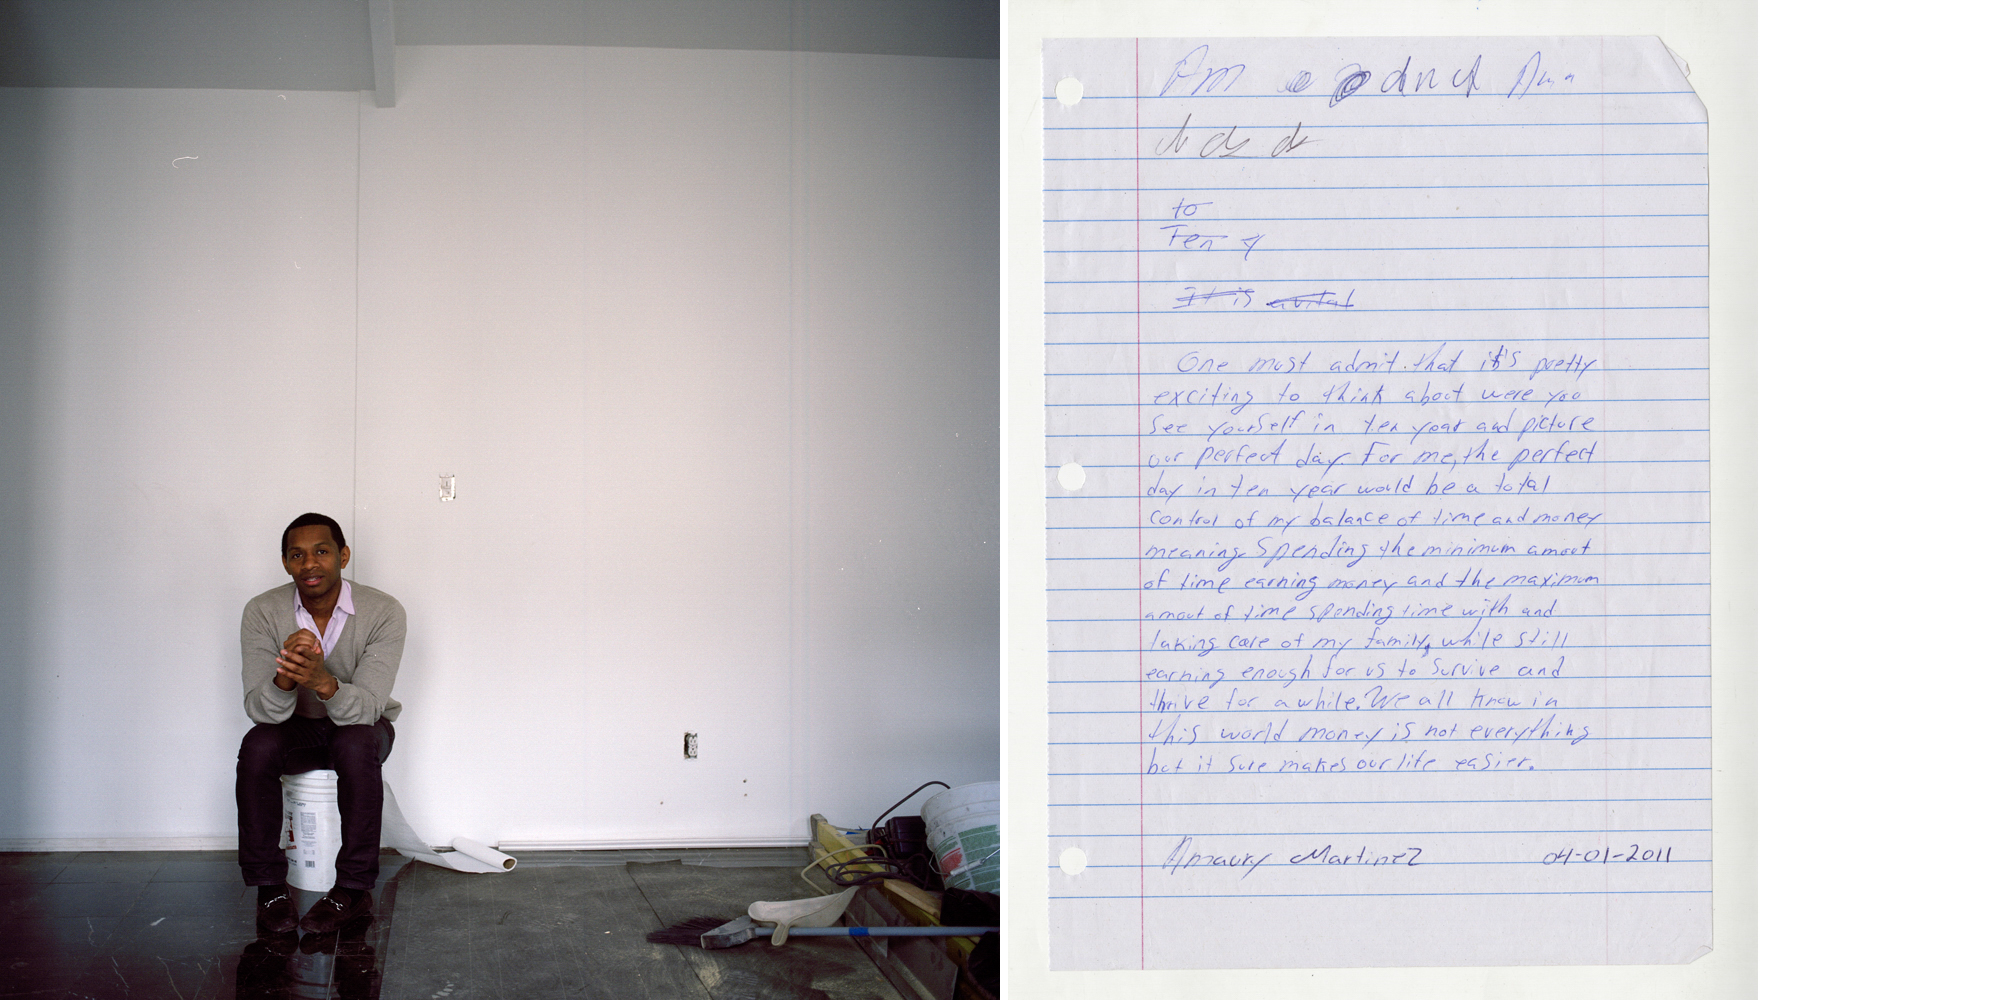 to
Ten y
It is a vital
One must admit that it's pretty
exciting to think about were you
See yourself in ten year and picture
our perfect day. For me, the perfect
day in ten year would be a total
control of my balance of time and money
meaning. Spending the minimum amout
of time earning money and the maximum
amout of time spending time with and
taking care of my family, while still
earning enough for us to survive and
thrive for a while. We all know in
this world money is not everything
but it sure makes our life easier.
Amaury Martinez 04-01-2011